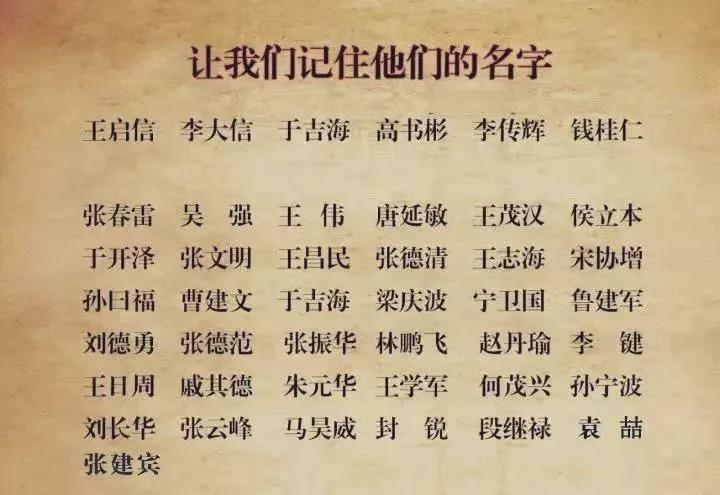 让我们记住他们的名字
王启信 李大信 于吉海 高书彬 李传辉 钱桂仁
张春雷 吴 强 王 伟 唐延敏 王茂汉 侯立本
于开泽 张文明 王昌民 张德清 王志海 宋协增
孙曰福 曹建文 于吉海 梁庆波 宁卫国 鲁建军
刘德勇 张德范 张振华 林鹏飞 赵丹瑜 李 键
王日周 戚其德 朱元华 王学军 何茂兴 孙宁波
刘长华 张云峰 马昊威 封 锐 段继禄 袁 喆
张建宾